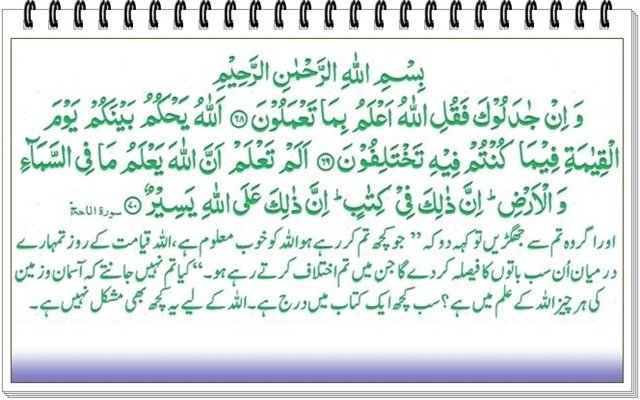 بِسْمِ اللهِ الرَّحْمٰنِ الرَّحِيْمِ
وَ اِنْ جٰدَلُوْكَ فَقُلِ اللهُ اَعْلَمُ بِمَا تَعْمَلُوْنَ ﴿۶۸﴾ اَللهُ يَحْكُمُ بَيْنَكُمْ يَوْمَ
الْقِيٰمَةِ فِيْمَا كُنْتُمْ فِيْهِ تَخْتَلِفُوْنَ ﴿۶۹﴾ اَلَمْ تَعْلَمْ اَنَّ اللهَ يَعْلَمُ مَا فِى السَّمَآءِ
وَ الْاَرْضِ ؕ اِنَّ ذٰلِكَ فِيْ كِتٰبٍ ؕ اِنَّ ذٰلِكَ عَلَى اللهِ يَسِيْرٌ ﴿۷۰﴾ سورۃ
اور اگر وہ تم سے جھگڑیں تو کہہ دو کہ ”جو کچھ تم کر رہے ہو اللہ کو خوب معلوم ہے، اللہ قیامت کے روز تمہارے
درمیان اُن سب باتوں کا فیصلہ کر دے گا جن میں تم اختلاف کرتے رہے ہو۔“ کیا تم نہیں جانتے کہ آسمان و زمین
کی ہر چیز اللہ کے علم میں ہے؟ سب کچھ ایک کتاب میں درج ہے۔ اللہ کے لیے یہ کچھ بھی مشکل نہیں ہے۔